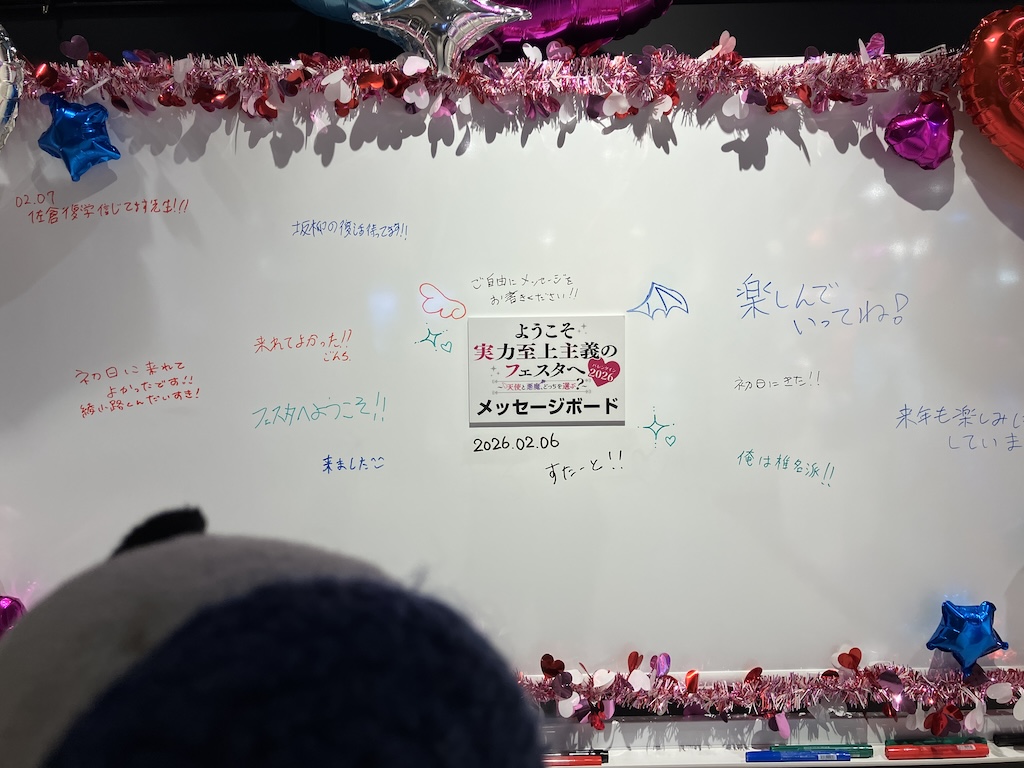 02.07
佐倉復学信じてます先生!!!
坂柳の復活待ってます!!
ご自由にメッセージを
お書きください!!
楽しんで
いってね!
来れてよかった!!
ごんち
ようこそ
実力至上主義の
フェスタへ
バレンタイン
2026
~天使と悪魔、どっちを選ぶ?~
メッセージボード
初日に来れて
よかったです!!
綾小路くんだいすき!
フェスタへようこそ!!
初日にきた!!
来年も楽しみに
していま
来ました
2026.02.06
すたーと!!
俺は椎名派!!